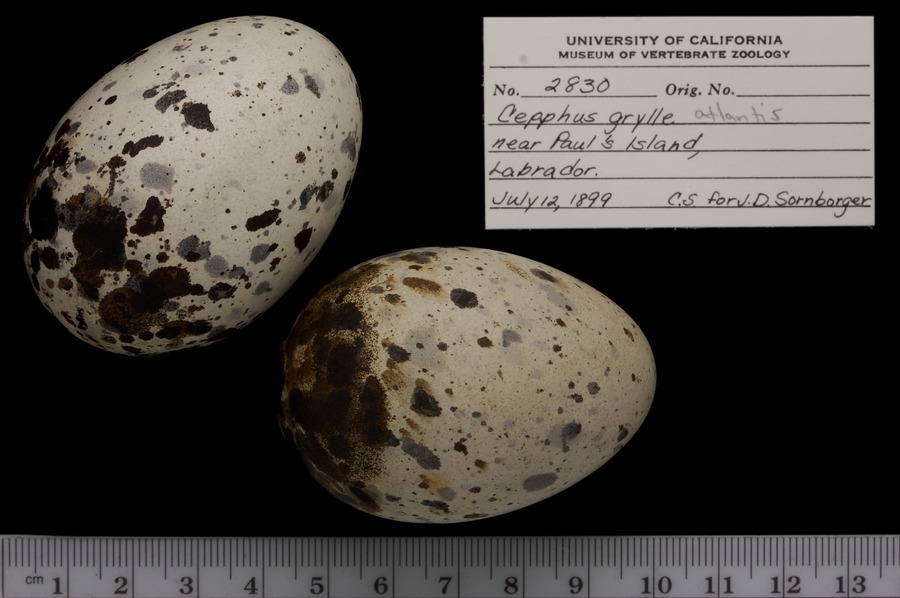 UNIVERSITY OF CALIFORNIA
MUSEUM OF VERTEBRATE ZOOLOGY
No. 2830 Orig. No.
Cepphus grylle atlantis
near Paul's Island,
Labrador.
July 12, 1899 C.S. for J.D. Sornborger
cm 1 2 3 4 5 6 7 8 9 10 11 12 13